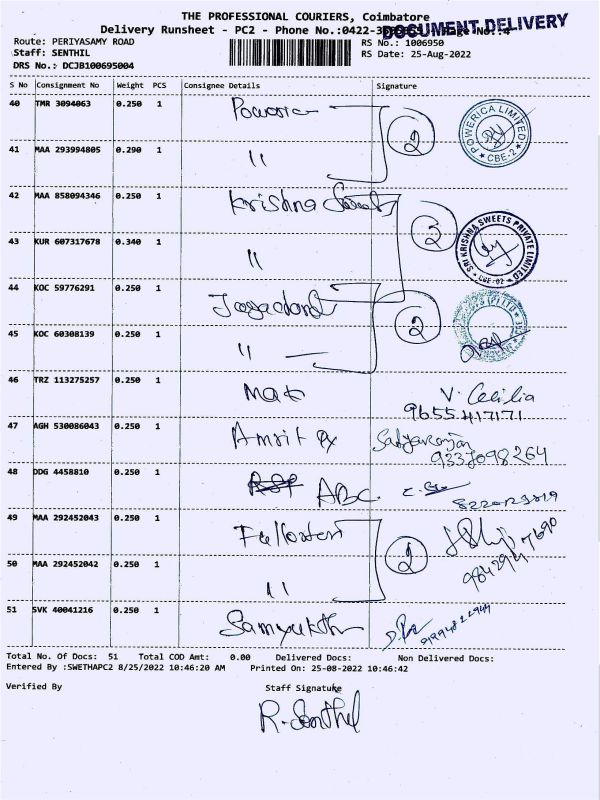 THE PROFESSIONAL COURIERS, Coimbatore
DOCUMENT DELIVERY
Delivery Runsheet - PC2 - Phone No.:0422- Page No.:4
Route: PERIYASAMY ROAD RS No.: 1006950
Staff: SENTHIL RS Date: 25-Aug-2022
DRS No.: DCJB100695004
S No Consignment No Weight PCS Consignee Details Signature
40 TMR 3094063 0.250 1 2 POWERICA LIMITED CBE-2
41 MAA 293994805 0.290 1 "
42 MAA 858094346 0.250 1 Krishna Sweets 2
43 KUR 607317678 0.340 1 " SRI KRISHNA SWEETS PRIVATE LIMITED CBE-02
44 KOC 59776291 0.250 1 2
45 KOC 60308139 0.250 1 "
46 TRZ 113275257 0.250 1 V. Cecilia
9655417171
47 AGH 530086043 0.250 1 Amrit
48 DDG 4458810 0.250 1 ABC
49 MAA 292452043 0.250 1 2
50 MAA 292452042 0.250 1 "
51 SVK 40041216 0.250 1
Total No. Of Docs: 51 Total COD Amt: 0.00 Delivered Docs: Non Delivered Docs:
Entered By :SWETHAPC2 8/25/2022 10:46:20 AM Printed On: 25-08-2022 10:46:42
Verified By Staff Signature
R. Senthil